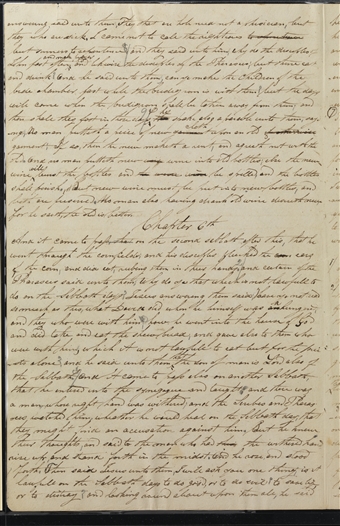 answering said unto them They that are hole need not a physician, but
they who are sick I came not to call the righteous to
but sinners to repentance and they said unto him why do the deciples of
John fast often and make prayers the deciples of the Pharisees, but thine eat
and drink and he said unto them, can ye make the children of the
bride chamber fast while the bridegroom is with them, but the days
will come when the bridegroom shall be taken away from them, and
then shall they fast in those days, he spake also a parable unto them, say-
ing, no man putteth a piece of new cloth upon an old
garment if so, then the new maketh a rent, and agreeth not with the
old and no man putteth new wine into old bottles, else the new
wine will burst the bottles and be spilled and the bottles
shall perish, But new wine must be put into new bottles, and
both are preserved, no man also having drank old wine desireth new
for he saith the old is better
Chapter 6th
And it came to pass on the second sabbath after this, that he
went through the cornfields and his deciples plucked the ears
of the corn, and did eat, rubing them in their hands, and certain of the
Pharisees said unto them, why do ye that which is not lawfull to
do on the Sabbath days, Jesus answering them said, have ye not read
so much as this, what David did, when he himself was an hungered,
and they who were with him, how he went into the house of God
and did take and eat the shewbread, and gave also to them who
were with him, which it is not lawfull to eat but for the priests
alone, and he said unto them that the son of man is Lord also of
the Sabbath, and it came to pass also on another Sabbath
that he entered into the synagogue and taught and there was
a man whose right hand was withered and the Scribes and Phari-
sees watched him, whether he would heal on the Sabbath day, that
they might find an accusation against him But he knew
their thoughts, and said to the man who had the withered hand
rise up, and stand forth in the midst, and he arose and stood
forth. Then said Jesus unto them I will ask you one thing, is it
lawfull on the Sabbath days to do good, or to do evil? to save life
or to destroy, and looking round about upon them all, he said